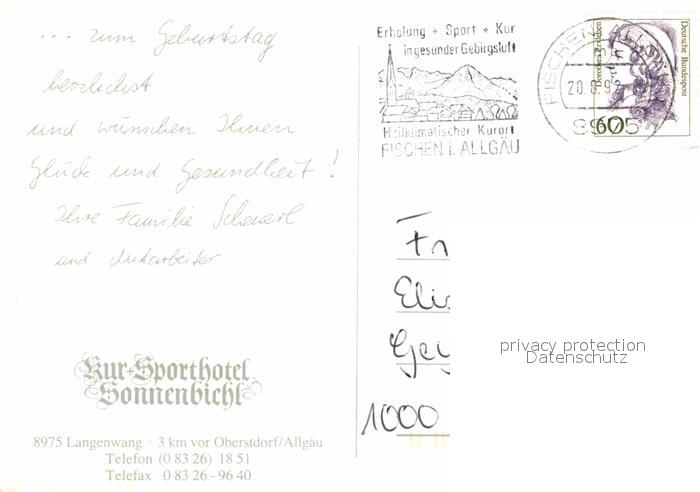 ... zum Geburtstag
herzlichst
und wünschen Ihnen
Glück und Gesundheit!
Ihre Familie
und Mitarbeiter
Kur+Sporthotel
Sonnenbichl
8975 Langenwang · 3 km vor Oberstdorf/Allgäu
Telefon (0 83 26) 18 51
Telefax 0 83 26 - 96 40
Erholung + Sport + Kur
in gesunder Gebirgsluft
Heilklimatischer Kurort
FISCHEN i. ALLGÄU
FISCHEN
20.8.9
8975
Deutsche Bundespost
Dorothea Erxleben
60
Fr
Elis
Gey
1000
privacy protection
Datenschutz